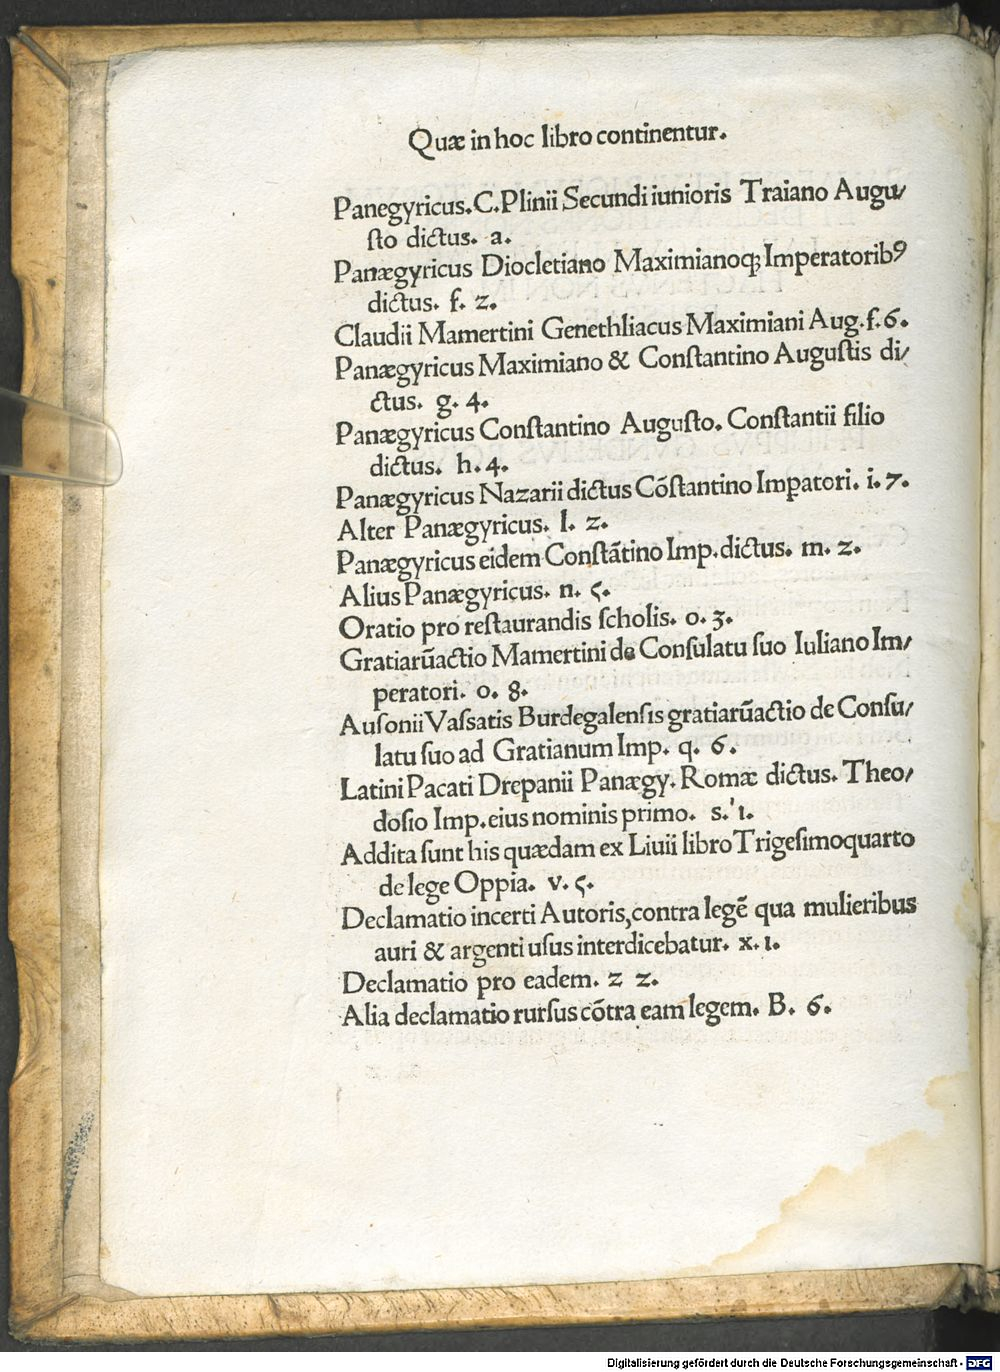 Quæ in hoc libro continentur.
Panegyricus.C.Plinii Secundi iunioris Traiano Augu/
ſto dictus. a.
Panægyricus Diocletiano Maximianoqꝫ Imperatoribꝰ
dictus. f. 2.
Claudii Mamertini Genethliacus Maximiani Aug.f.6.
Panægyricus Maximiano & Conſtantino Auguſtis di/
ctus. g. 4.
Panægyricus Conſtantino Auguſto. Conſtantii filio
dictus. h.4.
Panægyricus Nazarii dictus Cōſtantino Impatori. i.7.
Alter Panægyricus. l. 2.
Panægyricus eidem Conſtātino Imp.dictus. m. 2.
Alius Panægyricus. n. 5.
Oratio pro reſtaurandis ſcholis. o. 3.
Gratiarūactio Mamertini de Conſulatu ſuo Iuliano Im/
peratori. o. 8.
Auſonii Vaſſatis Burdegalenſis gratiarūactio de Conſu/
latu ſuo ad Gratianum Imp. q. 6.
Latini Pacati Drepanii Panægy. Romæ dictus. Theo/
doſio Imp.eius nominis primo. s.'1.
Addita ſunt his quædam ex Liuii libro Trigeſimoquarto
de lege Oppia. v. 5.
Declamatio incerti Autoris,contra legē qua mulieribus
auri & argenti uſus interdicebatur. x.1.
Declamatio pro eadem. z 2.
Alia declamatio rurſus cōtra eam legem. B. 6.
Digitalisierung gefördert durch die Deutsche Forschungsgemeinschaft - DFG